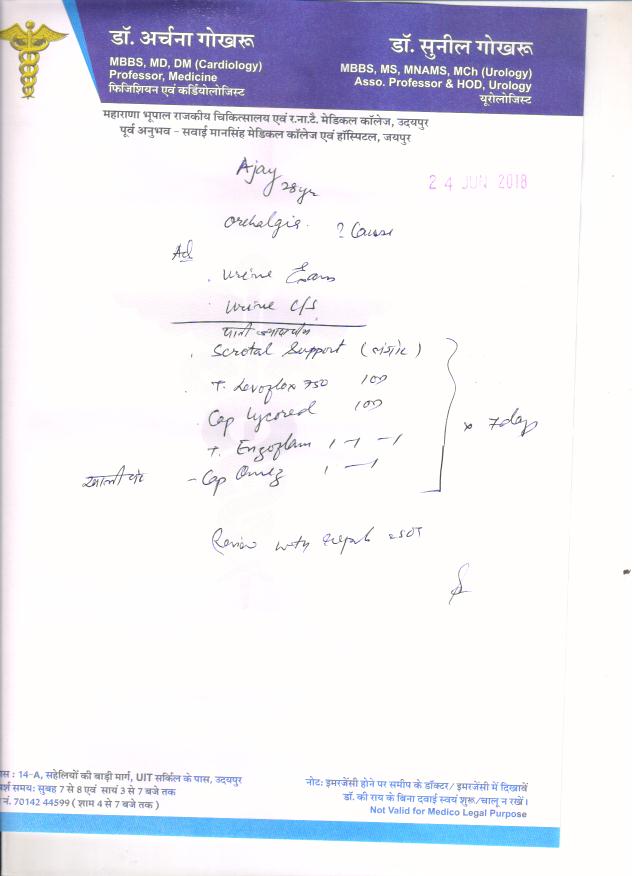 डॉ. अर्चना गोखरू
MBBS, MD, DM (Cardiology)
Professor, Medicine
फिजिशियन एवं कर्डियोलोजिस्ट
डॉ. सुनील गोखरू
MBBS, MS, MNAMS, MCh (Urology)
Asso. Professor & HOD, Urology
यूरोलोजिस्ट
महाराणा भूपाल राजकीय चिकित्सालय एवं र.ना.टै. मेडिकल कॉलेज, उदयपुर
पूर्व अनुभव - सवाई मानसिंह मेडिकल कॉलेज एवं हॉस्पिटल, जयपुर
Ajay
28yr
24 JUN 2018
Orchalgia. ? Cause
Ad
. Urine Exam
Urine C/S
. Scrotal Support (लंगोट)
. T. Levoflox 750 1 OD
. Cap Lycored 1 OD
. T. Enzoflam 1-1-1
खाली पेट - Cap Omez 1-1
x 7 days
Review with
स : 14-A, सहेलियों की बाड़ी मार्ग, UIT सर्किल के पास, उदयपुर
र्श समय: सुबह 7 से 8 एवं सायं 3 से 7 बजे तक
नं. 70142 44599 ( शाम 4 से 7 बजे तक )
नोट: इमरजेंसी होने पर समीप के डॉक्टर/ इमरजेंसी में दिखावें
डॉ. की राय के बिना दवाई स्वयं शुरू/चालू न रखें।
Not Valid for Medico Legal Purpose